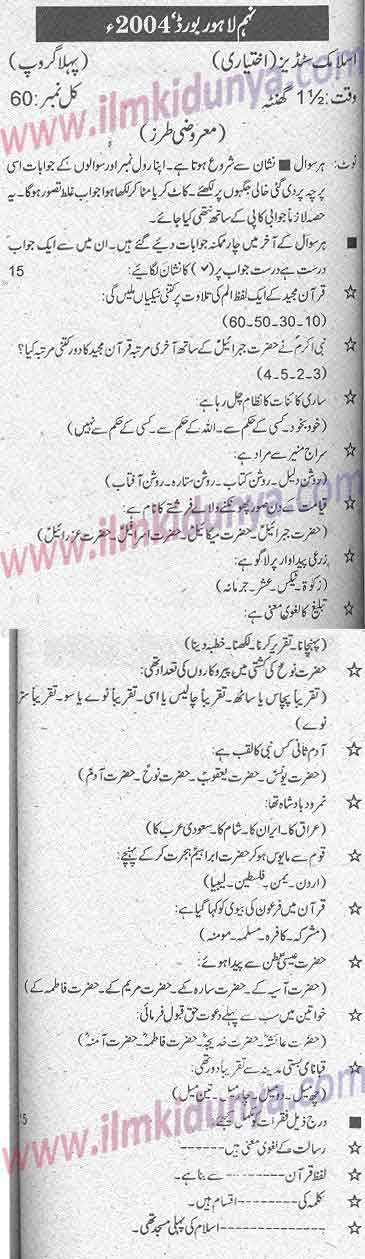 نہم لاہور بورڈ، 2004ء
اسلامک سٹڈیز (اختیاری) (پہلا گروپ)
وقت: 1½ گھنٹہ کل نمبر: 60
(معروضی طرز)
نوٹ: ہر سوال ■ نشان سے شروع ہوتا ہے۔ اپنا رول نمبر اور سوالوں کے جوابات اسی
پرچہ پر دی گئی خالی جگہوں پر لکھئے۔ کاٹ کر یا مٹا کر لکھا ہوا جواب غلط تصور ہوگا۔ یہ
حصہ لازماً جوابی کاپی کے ساتھ نتھی کیا جائے۔
■ ہر سوال کے آخر میں چار ممکنہ جوابات دیئے گئے ہیں۔ ان میں سے ایک جواب
درست ہے درست جواب پر (✓) کا نشان لگائیے: 15
☆ قرآن مجید کے ایک لفظ الم کی تلاوت پر کتنی نیکیاں ملیں گی:
(10-30-50-60)
☆ نبی اکرمؐ نے حضرت جبرائیلؑ کے ساتھ آخری مرتبہ قرآن مجید کا دور کتنی مرتبہ کیا؟
(3-2-5-4)
☆ ساری کائنات کا نظام چل رہا ہے:
(خود بخود۔ کسی کے حکم سے۔ اللہ کے حکم سے۔ کسی کے حکم سے نہیں)
☆ سراج منیر سے مراد ہے:
(روشن دلیل۔ روشن کتاب۔ روشن ستارہ۔ روشن آفتاب)
☆ قیامت کے دن صور پھونکنے والے فرشتے کا نام ہے:
(حضرت جبرائیلؑ۔ حضرت میکائیلؑ۔ حضرت اسرافیلؑ۔ حضرت عزرائیلؑ)
☆ زرعی پیداوار پر لاگو ہے:
(زکوٰۃ۔ ٹیکس۔ عشر۔ جرمانہ)
☆ تبلیغ کا لغوی معنی ہے:
(پہنچانا۔ تقریر کرنا۔ لکھنا۔ خطبہ دینا)
☆ حضرت نوحؑ کی کشتی میں پیروکاروں کی تعداد تھی:
(تقریباً پچاس یا ساٹھ۔ تقریباً چالیس یا اسی۔ تقریباً نوے یا سو۔ تقریباً ستر
نوے)
☆ آدم ثانی کس نبی کا لقب ہے:
(حضرت یونسؑ۔ حضرت یعقوبؑ۔ حضرت نوحؑ۔ حضرت آدمؑ)
☆ نمرود بادشاہ تھا:
(عراق کا۔ ایران کا۔ شام کا۔ سعودی عرب کا)
☆ قوم سے مایوس ہو کر حضرت ابراہیمؑ ہجرت کر کے پہنچے:
(اردن۔ یمن۔ فلسطین۔ لیبیا)
☆ قرآن میں فرعون کی بیوی کو کہا گیا ہے:
(مشرکہ۔ کافرہ۔ مسلمہ۔ مومنہ)
☆ حضرت عیسیٰؑ بطن سے پیدا ہوئے:
(حضرت آسیہ کے۔ حضرت سارہ کے۔ حضرت مریم کے۔ حضرت فاطمہ کے)
☆ خواتین میں سب سے پہلے دعوت حق قبول فرمائی:
(حضرت عائشہؓ۔ حضرت خدیجہؓ۔ حضرت فاطمہؓ۔ حضرت آمنہؓ)
☆ قبا نامی بستی مدینہ سے تقریباً دور تھی:
(چھ میل۔ دو میل۔ چار میل۔ تین میل)
■ درج ذیل فقرات کو مکمل کیجئے: 15
☆ رسالت کے لغوی معنی ہیں ---------
☆ لفظ قرآن --------- سے بنا ہے۔
☆ کلمہ کی --------- اقسام ہیں۔
☆ --------- اسلام کی پہلی مسجد تھی۔
www.ilmkidunya.com
www.ilmkidunya.com
www.ilmkidunya.com
www.ilmkidunya.com